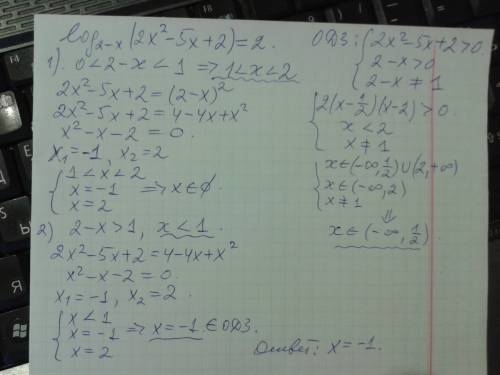 log₂₋ₓ(2x²-5x+2)=2.
1). 0<2-x<1 ⇒ 1<x<2
2x²-5x+2=(2-x)²
2x²-5x+2=4-4x+x²
x²-x-2=0.
x₁=-1, x₂=2
{ 1<x<2
x=-1 ⇒ x∈∅
x=2
2) 2-x>1, x<1.
2x²-5x+2=4-4x+x²
x²-x-2=0.
x₁=-1, x₂=2.
{ x<1
x=-1 ⇒ x=-1 ∈ ОДЗ.
x=2
ОДЗ: { 2x²-5x+2>0
2-x>0
2-x≠1
{ 2(x-1/2)(x-2)>0
x<2
x≠1
{ x∈(-∞,1/2)∪(2,+∞)
x∈(-∞,2)
x≠1
⇓
x∈(-∞,1/2)
Ответ: x=-1.